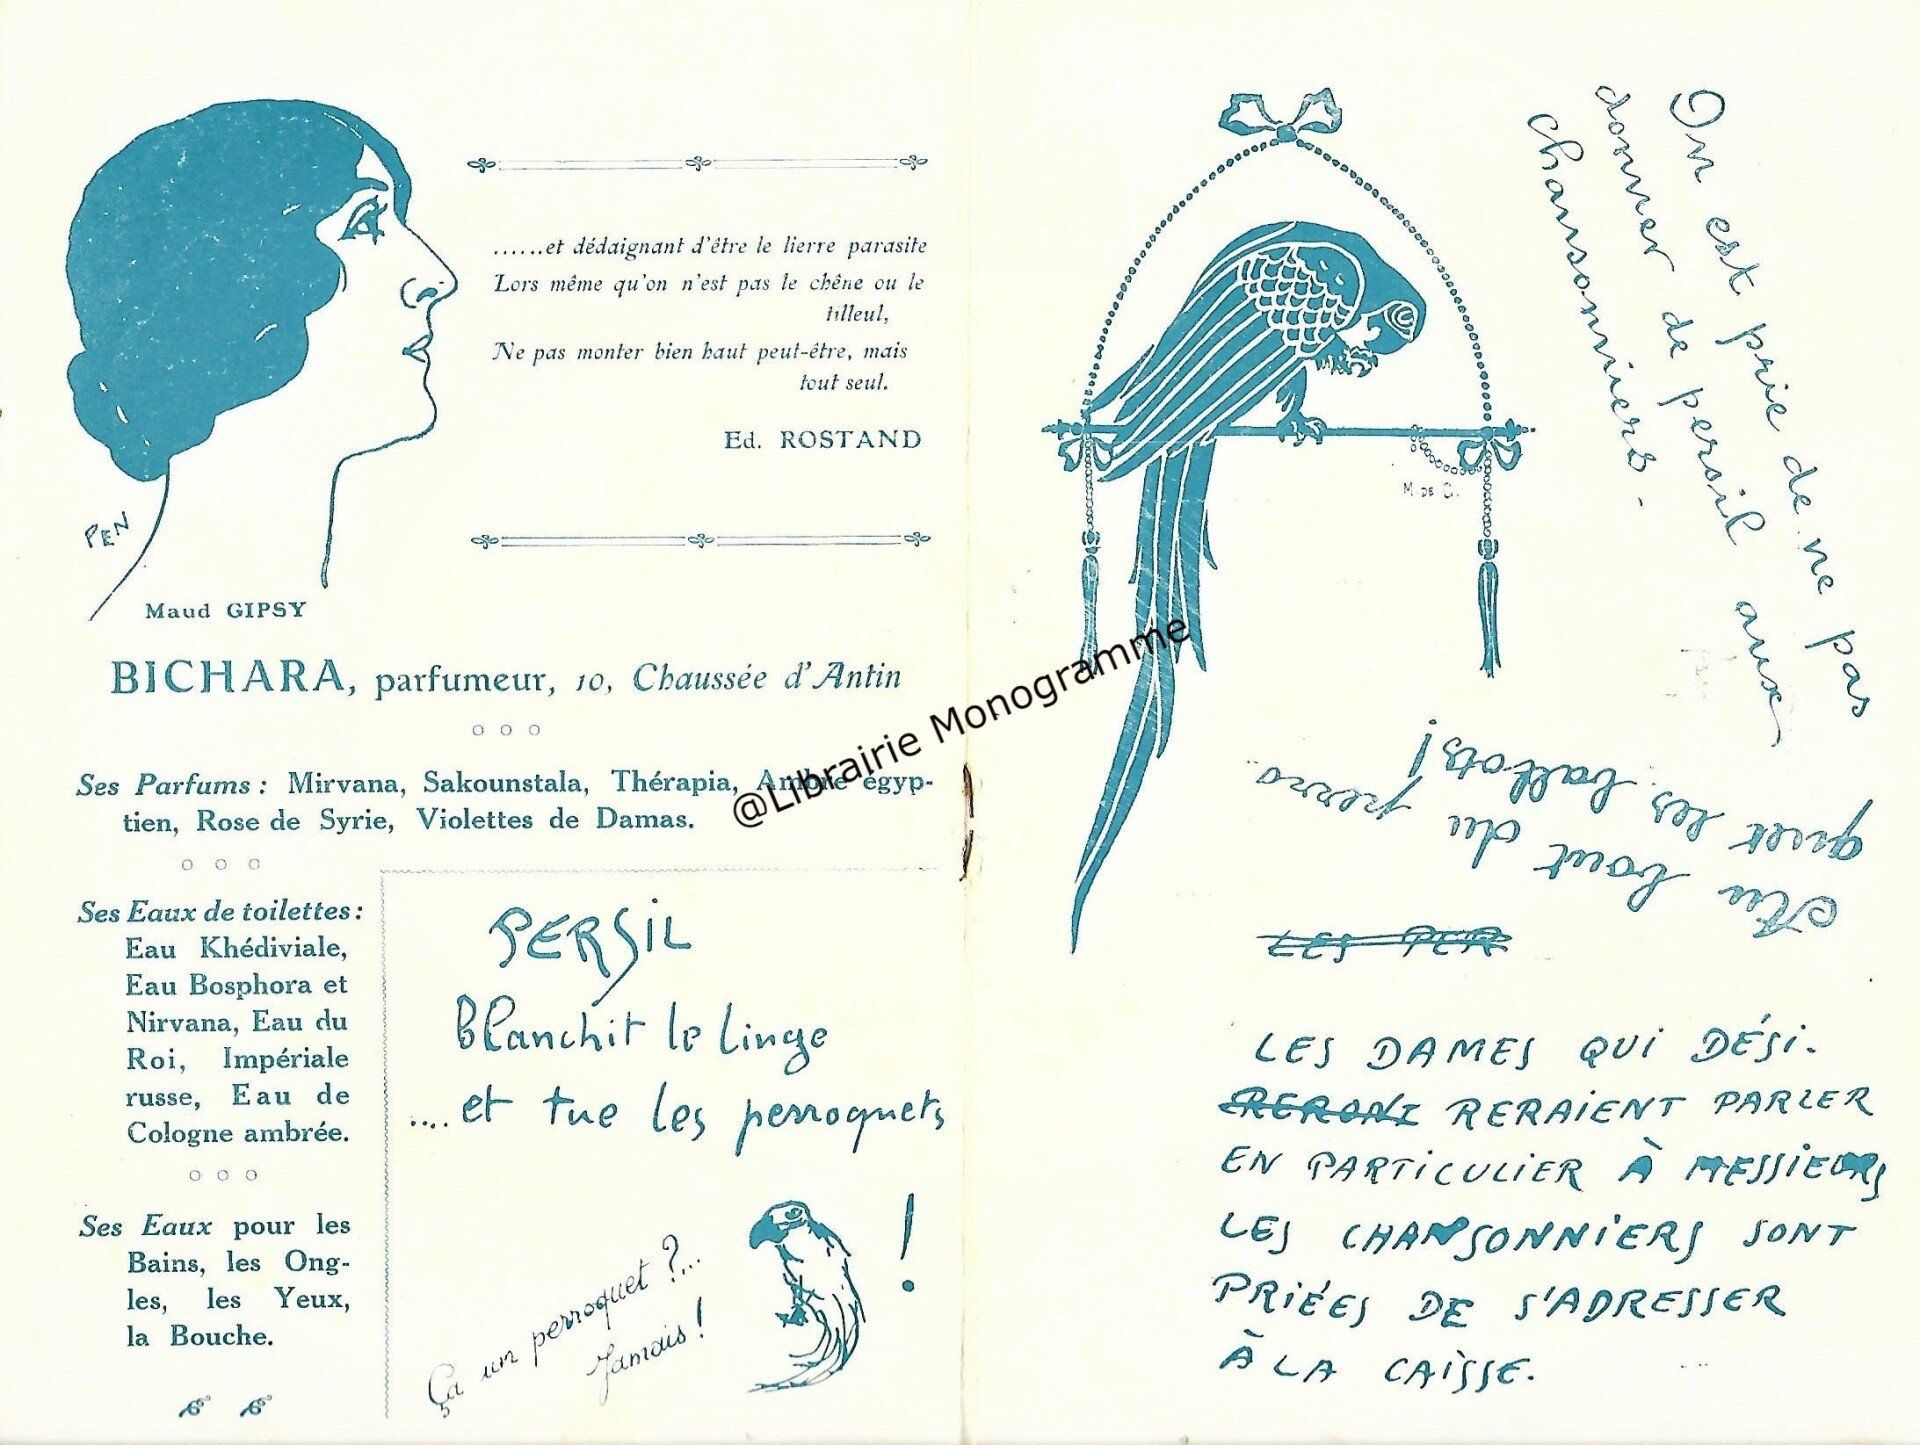 ......et dédaignant d'être le lierre parasite
Lors même qu'on n'est pas le chêne ou le
tilleul,
Ne pas monter bien haut peut-être, mais
tout seul.
Ed. ROSTAND
PEN
Maud GIPSY
BICHARA, parfumeur, 10, Chaussée d'Antin
Ses Parfums : Mirvana, Sakounstala, Thérapia, Ambre égyp-
tien, Rose de Syrie, Violettes de Damas.
Ses Eaux de toilettes :
Eau Khédiviale,
Eau Bosphora et
Nirvana, Eau du
Roi, Impériale
russe, Eau de
Cologne ambrée.
Ses Eaux pour les
Bains, les Ong-
les, les Yeux,
la Bouche.
PERSIL
blanchit le linge
.... et tue les perroquets
Ça un perroquet ?...
Jamais !
!
@Librairie Monogramme
M. DE G.
On est prié de ne pas
donner de persil aux
chansonniers.
Au bout du perro
quet les ballots !
LES PER
LES DAMES QUI DÉSI-
RERONT RERAIENT PARLER
EN PARTICULIER À MESSIEURS
LES CHANSONNIERS SONT
PRIÉES DE S'ADRESSER
À LA CAISSE.